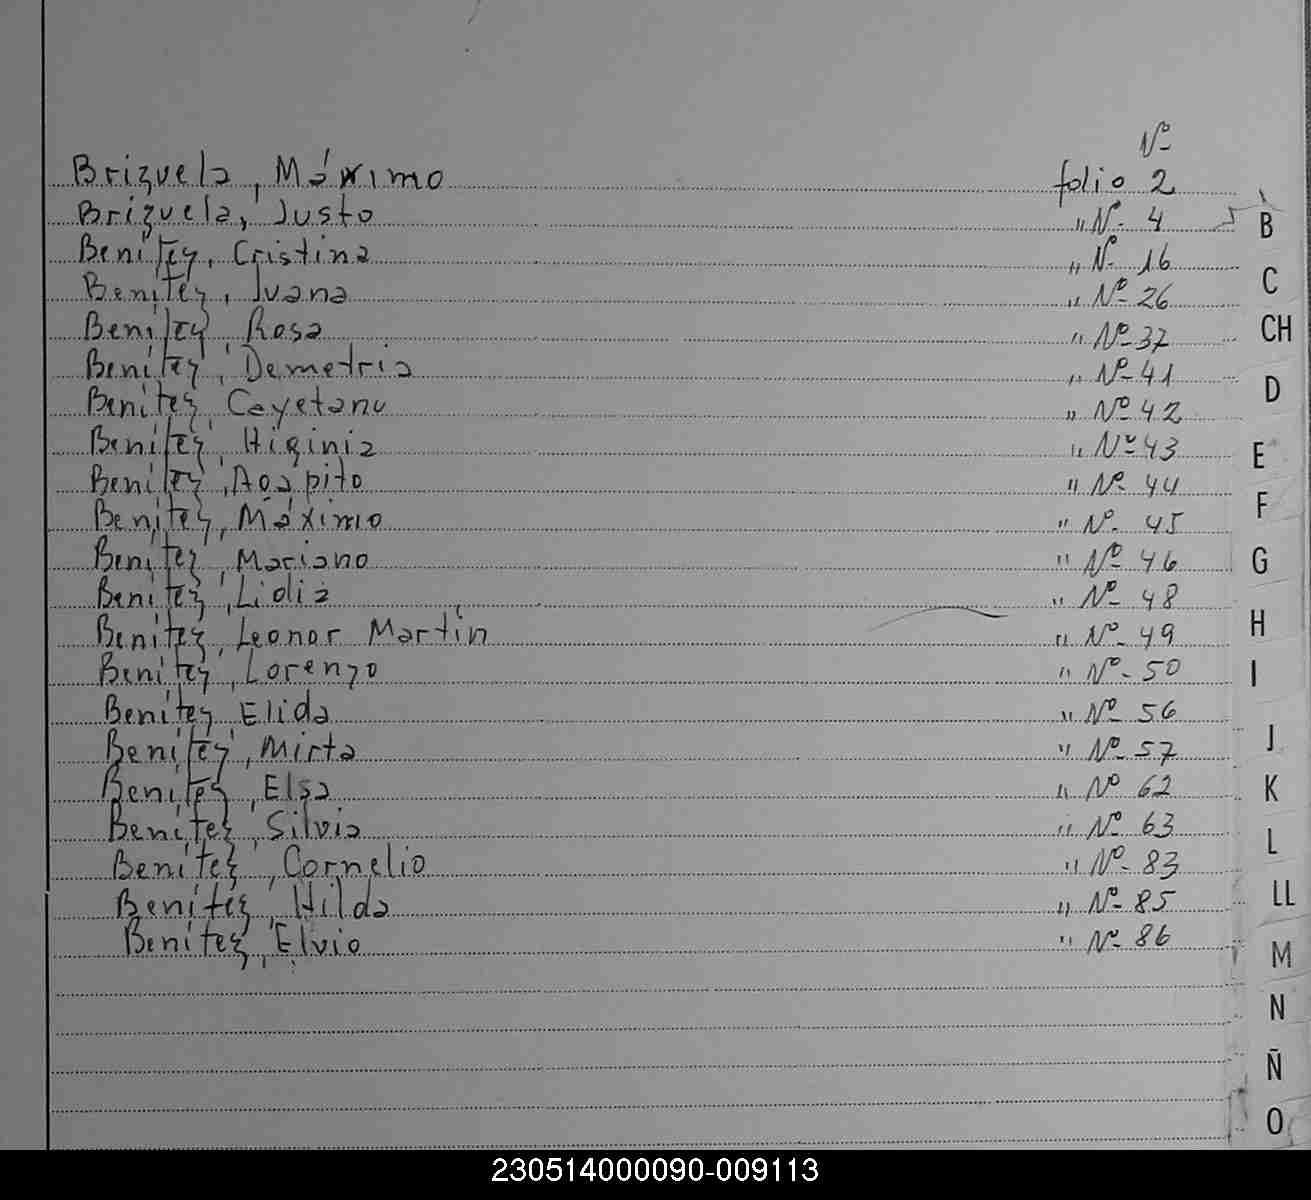 Nº
Brizuela, Máximo folio 2
Brizuela, Justo " Nº 4
Benítez, Cristina " Nº 16
Benítez, Juana " Nº 26
Benítez, Rosa " Nº 37
Benítez, Demetria " Nº 41
Benítez, Cayetano " Nº 42
Benítez, Higinia " Nº 43
Benítez, Agapito " Nº 44
Benítez, Máximo " Nº 45
Benítez, Mariano " Nº 46
Benítez, Lidia " Nº 48
Benítez, Leonor Martín " Nº 49
Benítez, Lorenzo " Nº 50
Benítez, Elida " Nº 56
Benítez, Mirta " Nº 57
Benítez, Elsa " Nº 62
Benítez, Silvia " Nº 63
Benítez, Cornelio " Nº 83
Benítez, Hilda " Nº 85
Benítez, Elvio " Nº 86
B
C
CH
D
E
F
G
H
I
J
K
L
LL
M
N
Ñ
O
230514000090-009113